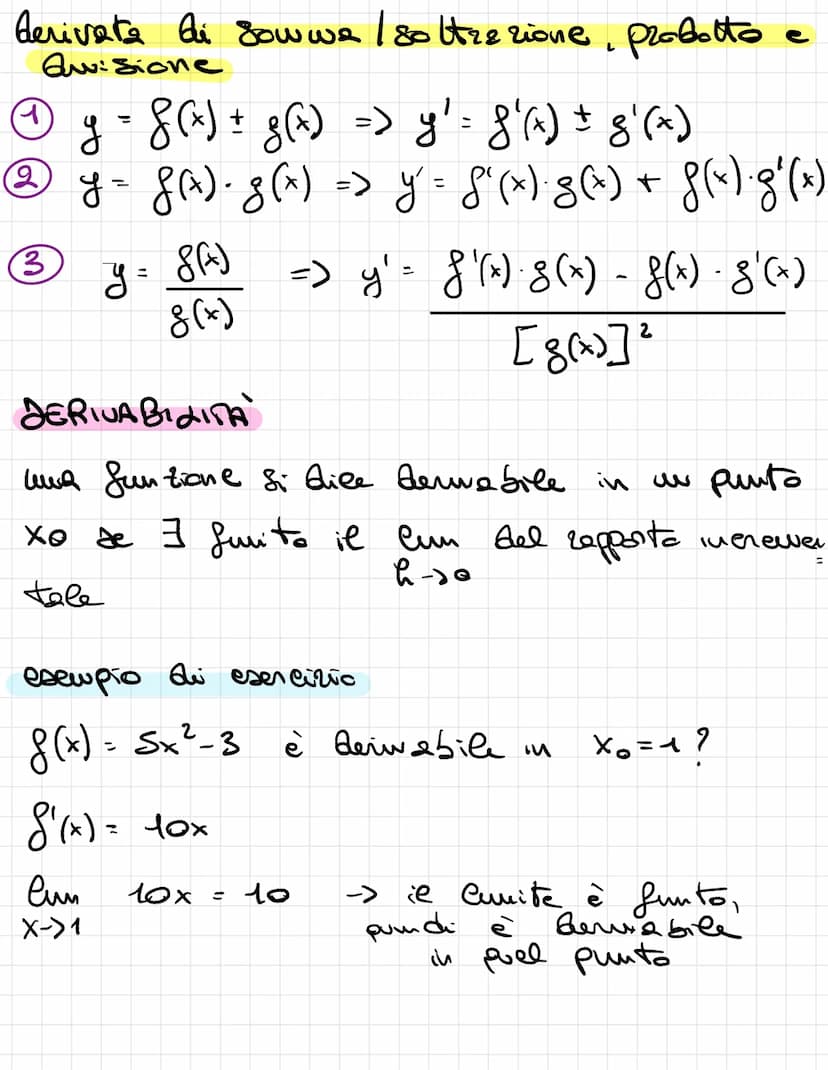 derivata di somma / sottrazione, prodotto e
divisione
1 y = f(x) ± g(x) => y' = f'(x) ± g'(x)
2 y = f(x) · g(x) => y' = f'(x) · g(x) + f(x) · g'(x)
3 y = f(x) / g(x) => y' = f'(x) · g(x) - f(x) · g'(x) / [g(x)]²
DERIVABILITÀ
una funzione si dice derivabile in un punto
x0 se ∃ finito il lim del rapporto incremen
h->0
tale
esempio di esercizio
f(x) = 5x²-3 è derivabile in x₀=1?
f'(x) = 10x
lim 10x = 10 -> il limite è finito,
x->1 quindi è derivabile
in quel punto